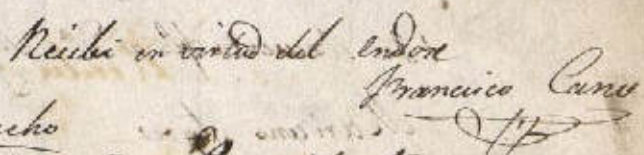 Recibi en virtud del endose
Francisco Cano